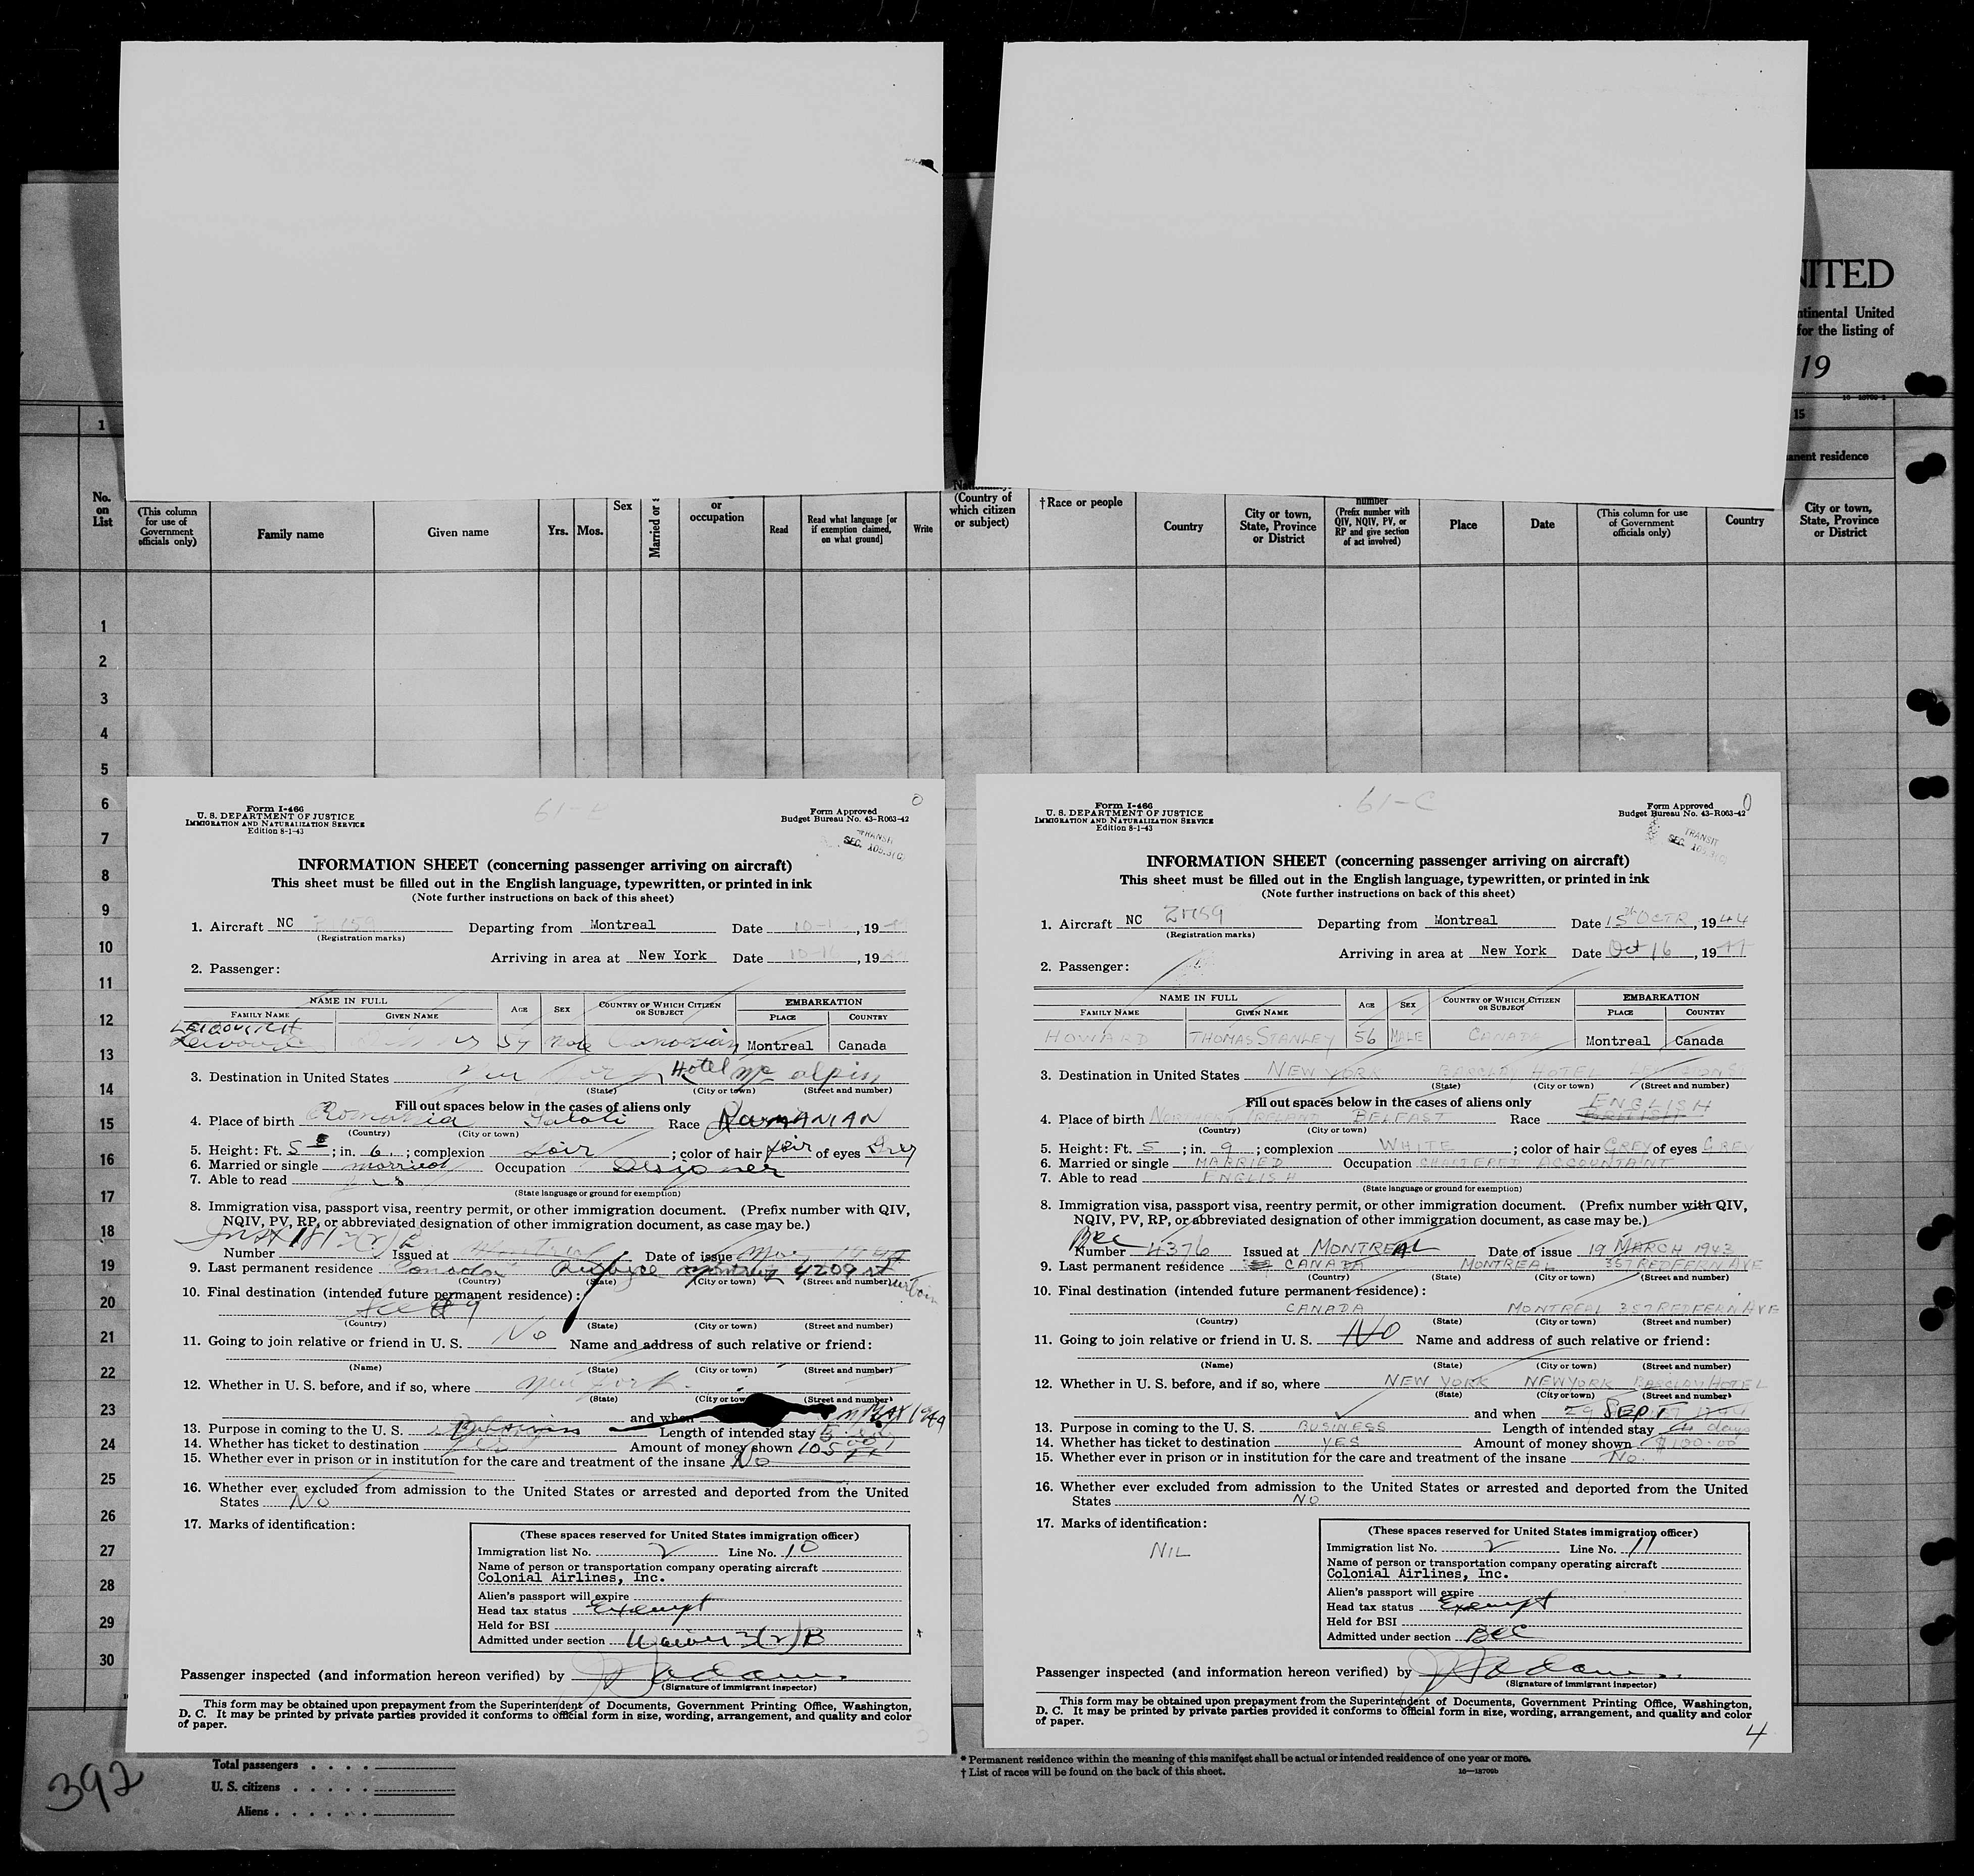 NITED
ntinental United
for the listing of
19
16—18709-1
1
15
anent residence
No. on List
(This column for use of Government officials only)
Family name
Given name
Yrs.
Mos.
Sex
Married or s
or occupation
Read
Read what language [or if exemption claimed, on what ground]
Write
(Country of which citizen or subject)
†Race or people
Country
City or town, State, Province or District
number (Prefix number with QIV, NQIV, PV, or RP and give section of act involved)
Place
Date
(This column for use of Government officials only)
Country
City or town, State, Province or District
1
2
3
4
5
6
7
8
9
10
11
12
13
14
15
16
17
18
19
20
21
22
23
24
25
26
27
28
29
30
Form I-466
U. S. DEPARTMENT OF JUSTICE
IMMIGRATION AND NATURALIZATION SERVICE
Edition 8-1-43
Form Approved
Budget Bureau No. 43-R063-42
TRANSIT
SEC. 103.3(C)
INFORMATION SHEET (concerning passenger arriving on aircraft)
This sheet must be filled out in the English language, typewritten, or printed in ink
(Note further instructions on back of this sheet)
1. Aircraft NC Departing from Montreal Date , 19
(Registration marks)
Arriving in area at New York Date 10-16 , 19
2. Passenger:
NAME IN FULL AGE SEX COUNTRY OF WHICH CITIZEN OR SUBJECT EMBARKATION
FAMILY NAME GIVEN NAME PLACE COUNTRY
LEIBOVITCH
Canadian Montreal Canada
3. Destination in United States New York Hotel Mc alpin
(State) (City or town) (Street and number)
Fill out spaces below in the cases of aliens only
4. Place of birth Romania Galati Race ROMANIAN
(Country) (City or town)
5. Height: Ft. 5 ; in. 6 ; complexion fair ; color of hair fair of eyes Grey
6. Married or single married Occupation Designer
7. Able to read yes
(State language or ground for exemption)
8. Immigration visa, passport visa, reentry permit, or other immigration document. (Prefix number with QIV,
NQIV, PV, RP, or abbreviated designation of other immigration document, as case may be.)
Number Issued at Montreal Date of issue
9. Last permanent residence Canada Quebec Montreal 4209 St
(Country) (State) (City or town) (Street and number)
10. Final destination (intended future permanent residence):
See #9
(Country) (State) (City or town) (Street and number)
11. Going to join relative or friend in U. S. No Name and address of such relative or friend:
(Name) (State) (City or town) (Street and number)
12. Whether in U. S. before, and if so, where New York
(State) (City or town) (Street and number)
and when
13. Purpose in coming to the U. S. Business Length of intended stay
14. Whether has ticket to destination yes Amount of money shown 105
15. Whether ever in prison or in institution for the care and treatment of the insane No
16. Whether ever excluded from admission to the United States or arrested and deported from the United
States No
17. Marks of identification:
(These spaces reserved for United States immigration officer)
Immigration list No. 2 Line No. 10
Name of person or transportation company operating aircraft
Colonial Airlines, Inc.
Alien's passport will expire
Head tax status Exempt
Held for BSI
Admitted under section Waiver 3(2)B
Passenger inspected (and information hereon verified) by
(Signature of immigrant inspector)
This form may be obtained upon prepayment from the Superintendent of Documents, Government Printing Office, Washington,
D. C. It may be printed by private parties provided it conforms to official form in size, wording, arrangement, and quality and color
of paper.
61-C
Form I-466
U. S. DEPARTMENT OF JUSTICE
IMMIGRATION AND NATURALIZATION SERVICE
Edition 8-1-43
Form Approved
Budget Bureau No. 43-R063-42
TRANSIT
SEC. 103.3(C)
INFORMATION SHEET (concerning passenger arriving on aircraft)
This sheet must be filled out in the English language, typewritten, or printed in ink
(Note further instructions on back of this sheet)
1. Aircraft NC 21759 Departing from Montreal Date 15th OCTR, 1944
(Registration marks)
Arriving in area at New York Date Oct 16, 1944
2. Passenger:
NAME IN FULL AGE SEX COUNTRY OF WHICH CITIZEN OR SUBJECT EMBARKATION
FAMILY NAME GIVEN NAME PLACE COUNTRY
HOWARD THOMAS STANLEY 56 MALE CANADA Montreal Canada
3. Destination in United States NEW YORK BARCLAY HOTEL
(State) (City or town) (Street and number)
Fill out spaces below in the cases of aliens only
ENGLISH
4. Place of birth NORTHERN IRELAND BELFAST Race BRITISH
(Country) (City or town)
5. Height: Ft. 5 ; in. 9 ; complexion WHITE ; color of hair GREY of eyes GREY
6. Married or single MARRIED Occupation CHARTERED ACCOUNTANT
7. Able to read ENGLISH
(State language or ground for exemption)
8. Immigration visa, passport visa, reentry permit, or other immigration document. (Prefix number with QIV,
NQIV, PV, RP, or abbreviated designation of other immigration document, as case may be.)
BCC
Number 4376 Issued at MONTREAL Date of issue 19 MARCH 1943
9. Last permanent residence CANADA MONTREAL 357 REDFERN AVE
(Country) (State) (City or town) (Street and number)
10. Final destination (intended future permanent residence):
CANADA MONTREAL 357 REDFERN AVE
(Country) (State) (City or town) (Street and number)
11. Going to join relative or friend in U. S. No Name and address of such relative or friend:
(Name) (State) (City or town) (Street and number)
12. Whether in U. S. before, and if so, where NEW YORK NEW YORK BARCLAY HOTEL
(State) (City or town) (Street and number)
and when 29 SEPT
13. Purpose in coming to the U. S. BUSINESS Length of intended stay days
14. Whether has ticket to destination YES Amount of money shown $100.00
15. Whether ever in prison or in institution for the care and treatment of the insane No.
16. Whether ever excluded from admission to the United States or arrested and deported from the United
States NO
17. Marks of identification:
NIL
(These spaces reserved for United States immigration officer)
Immigration list No. 2 Line No. 11
Name of person or transportation company operating aircraft
Colonial Airlines, Inc.
Alien's passport will expire
Head tax status Exempt
Held for BSI
Admitted under section BCC
Passenger inspected (and information hereon verified) by
(Signature of immigrant inspector)
This form may be obtained upon prepayment from the Superintendent of Documents, Government Printing Office, Washington,
D. C. It may be printed by private parties provided it conforms to official form in size, wording, arrangement, and quality and color
of paper.
4
392
Total passengers
U. S. citizens
Aliens
* Permanent residence within the meaning of this manifest shall be actual or intended residence of one year or more.
† List of races will be found on the back of this sheet.
16—18709b